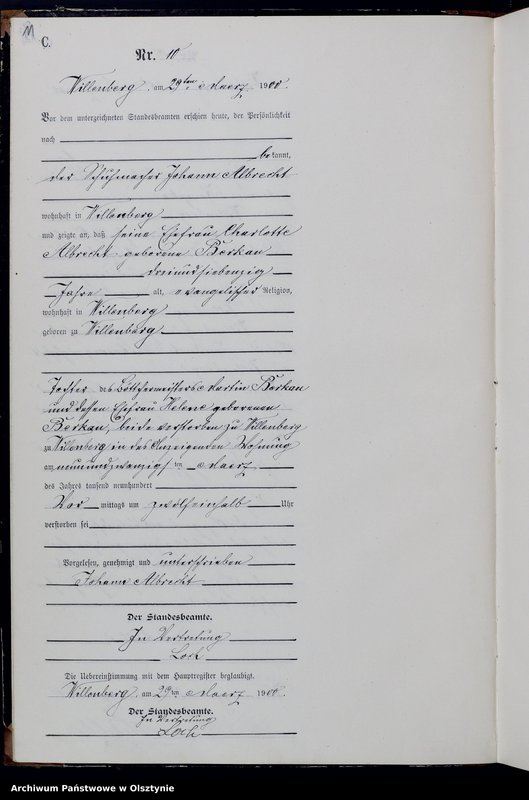 M
C.
Nr. 10
Willenberg, am 29ten Maerz 1900.
Vor dem unterzeichneten Standesbeamten erschien heute, der Persönlichkeit
nach
bekannt,
der Schuhmacher Johann Albrecht
wohnhaft in Willenberg
und zeigte an, daß seine Ehefrau Charlotte
Albrecht geborene Berkau
dreiundsiebenzig
Jahre alt, evangelischer Religion,
wohnhaft in Willenberg
geboren zu Willenberg
Tochter des Böttchermeisters Martin Berkau
und dessen Ehefrau Helene geborenen
Berkau, beide verstorben zu Willenberg
zu Willenberg in des Anzeigenden Wohnung
am neunundzwanzigsten Maerz
des Jahres tausend neunhundert
Vor mittags um zwölfeinhalb Uhr
verstorben sei
Vorgelesen, genehmigt und unterschrieben
Johann Albrecht
Der Standesbeamte.
In Vertretung
Loch
Die Uebereinstimmung mit dem Hauptregister beglaubigt.
Willenberg, am 29ten Maerz 1900.
Der Standesbeamte.
In Vertretung
Loch
Archiwum Państwowe w Olsztynie